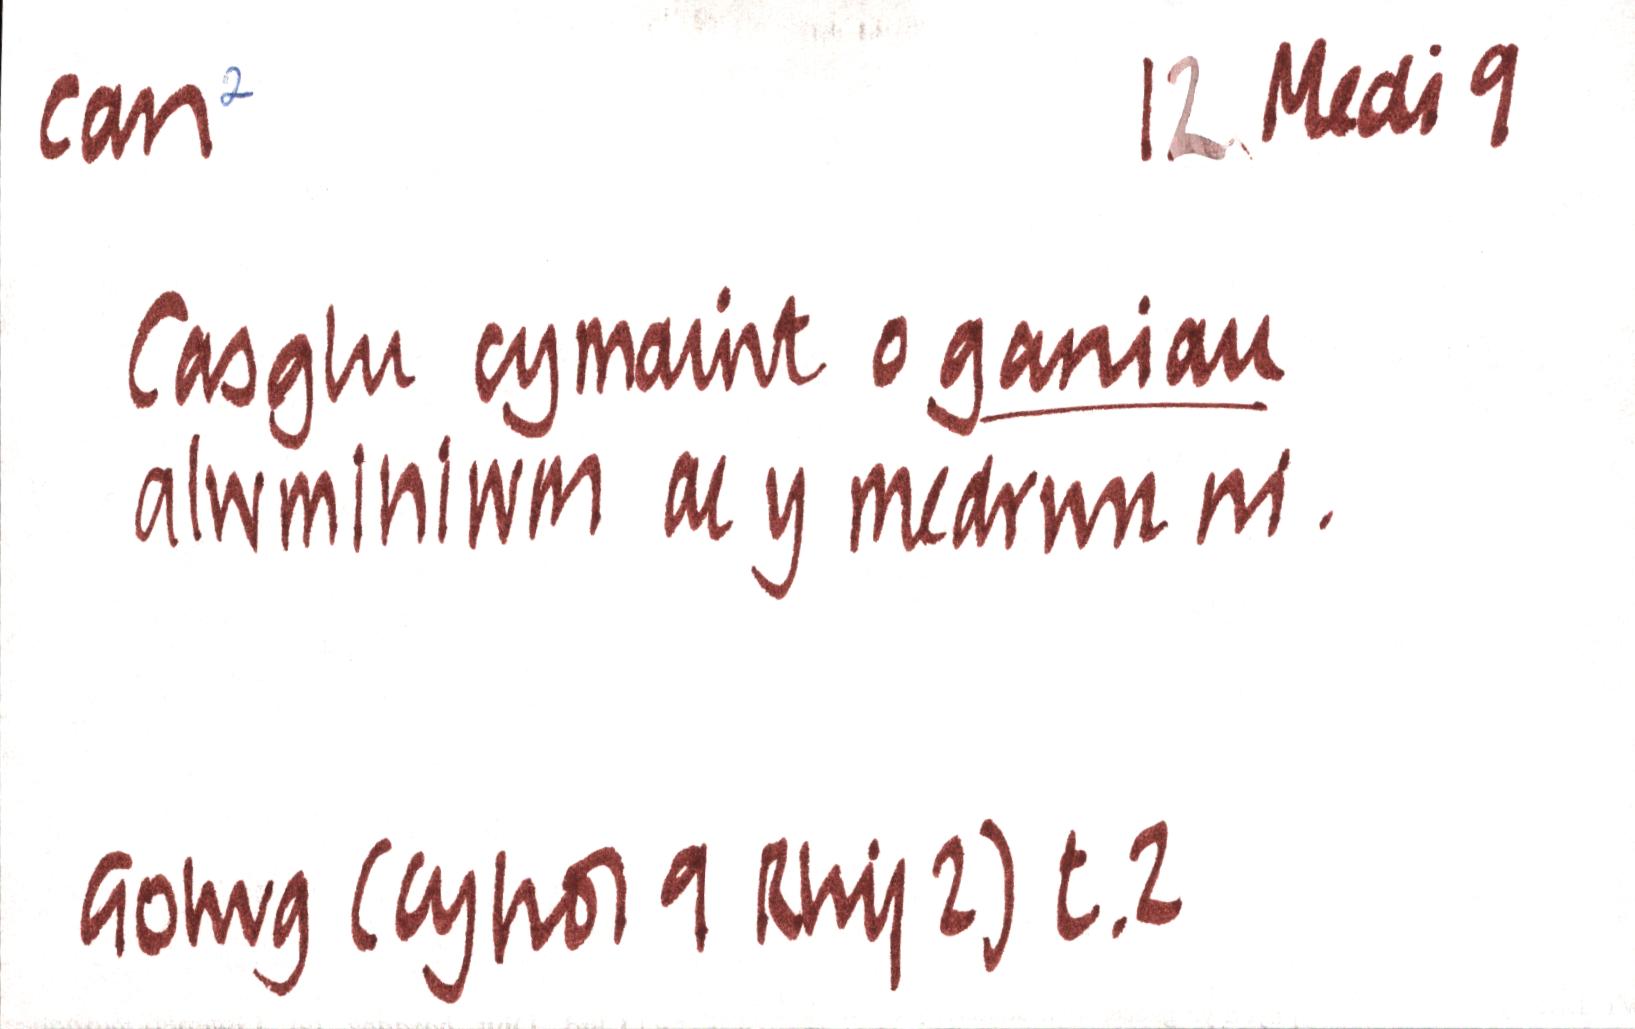 can²
12. Medi 9
Casglu cymaint o ganiau
alwminiwm ac y medrwn ni.
Golwg (cyfrol 9 Rhif 2) t.2